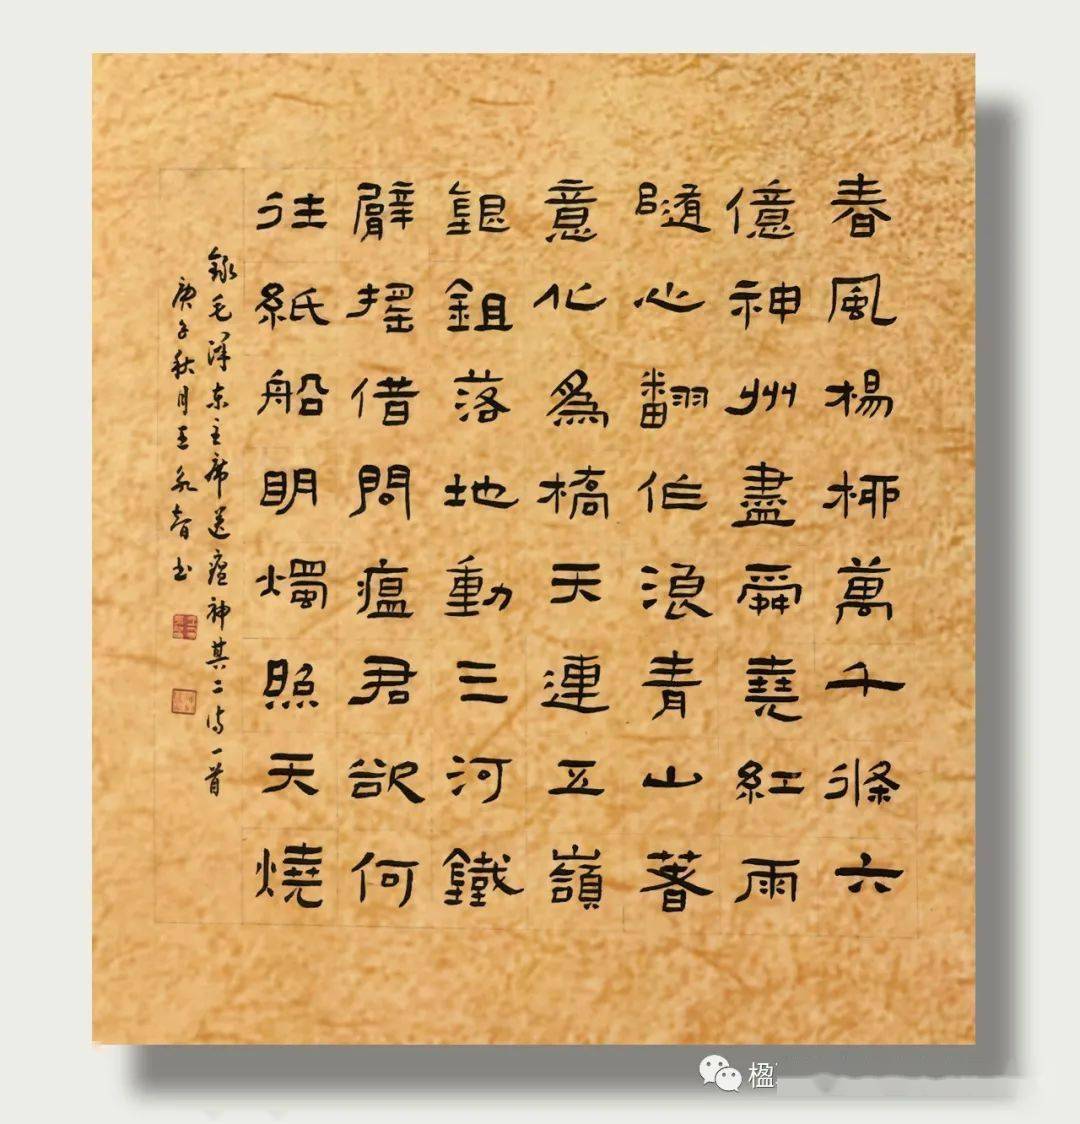 春風楊柳萬千條六
億神州盡舜堯紅雨
隨心翻作浪青山著
意化為橋天連五嶺
銀鉏落地動三河鐵
臂搖借問瘟君欲何
往紙船明燭照天燒
錄毛澤東主席送瘟神其二詩一首
庚子秋月王永智书
楹